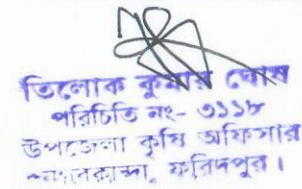 তিলোক কুমার ঘোষ
পরিচিতি নং- ৩১১৮
উপজেলা কৃষি অফিসার
নগরকান্দা, ফরিদপুর।